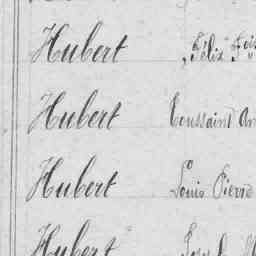 Hubert Félix
Hubert Toussaint
Hubert Louis Pierre
Hubert